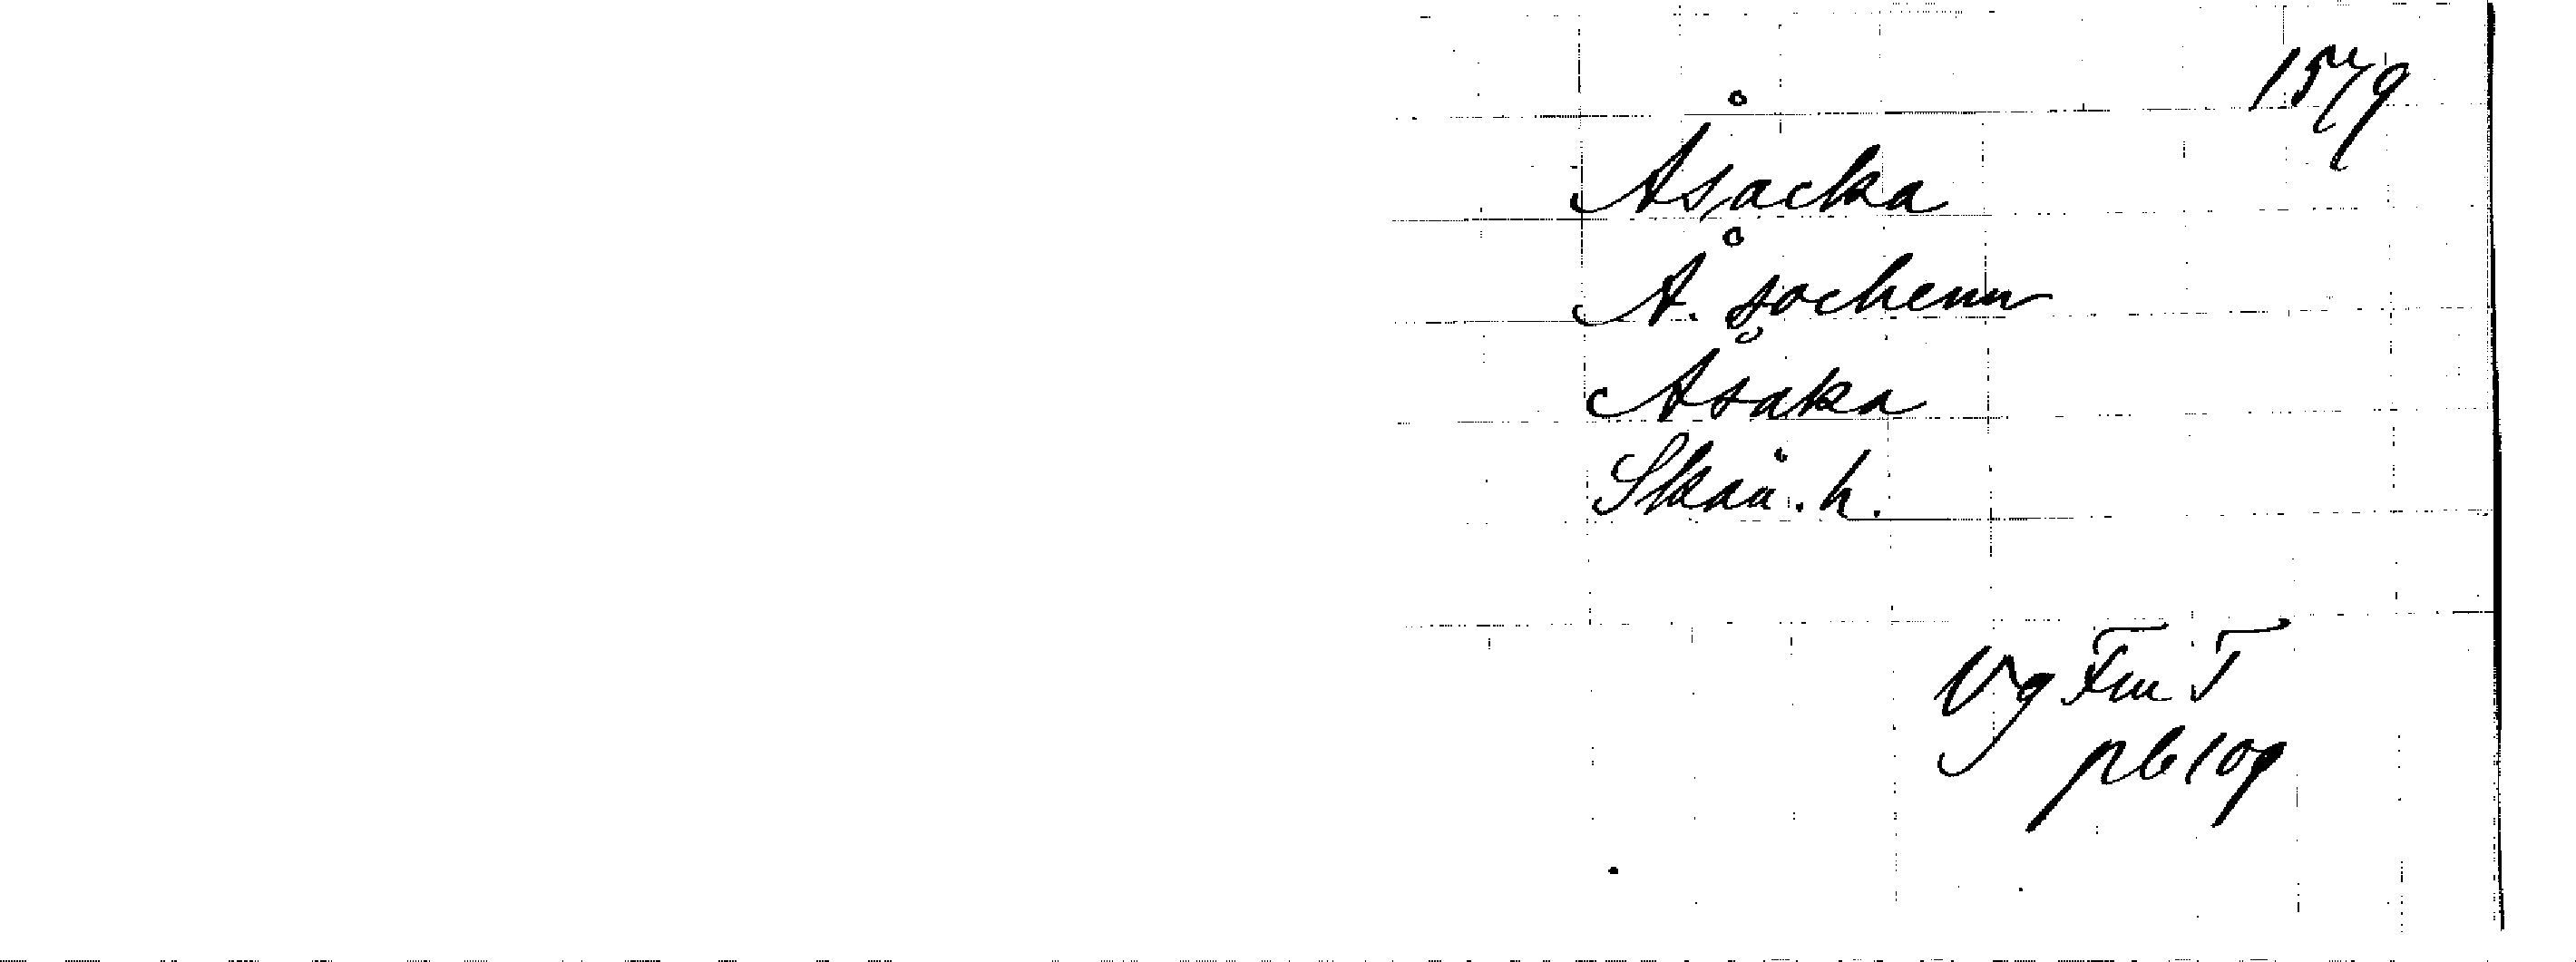 1579
Åsacka
Å. sochenn
Åsaka
Skån. h.
Vg Fm T
pb 109